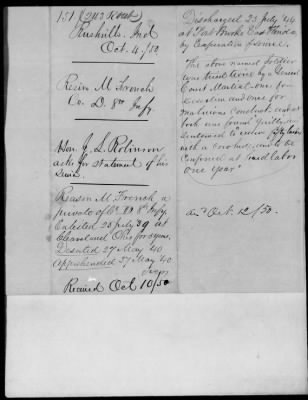 151 R 243 Rcut
Rushville, Ind
Oct. 4/50
Reason M. French
Co. D. 8th Infy
Hon J. L. Robinson
asks for statement of his
Service
Reason M. French, a
private of Co "D" 8" Infy.
Enlisted 23 July 39 at
Cleaveland Ohio for 5 years.
Deserted 27 May 40
Apprehended 27 May 40
over
Received Oct 10/50
Discharged 23 July 44
at Fort Brooke East Florida
by Expiration of Service.
The above named Soldier
was tried twice by a General
Court Martial - once for
desertion and once for
Mutinous Conduct and on
both was found guilty, and
sentenced to receive fifty lashes
with a Cowhide, and to be
confined at hard labor
one year
ansd Oct. 12/50.